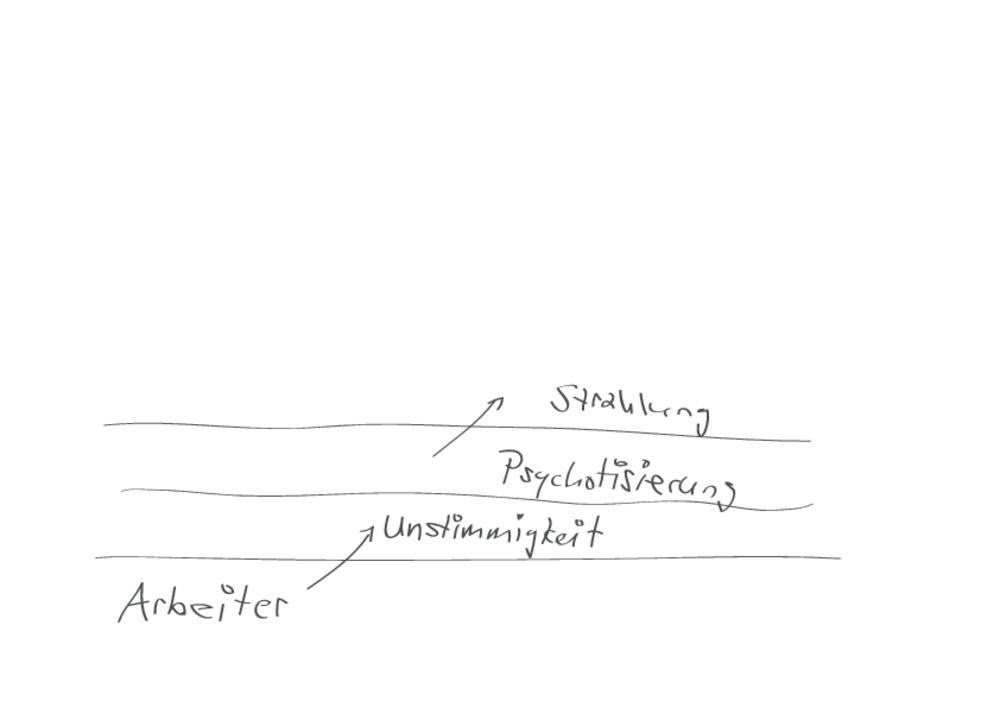 Strahlung
Psychotisierung
Unstimmigkeit
Arbeiter